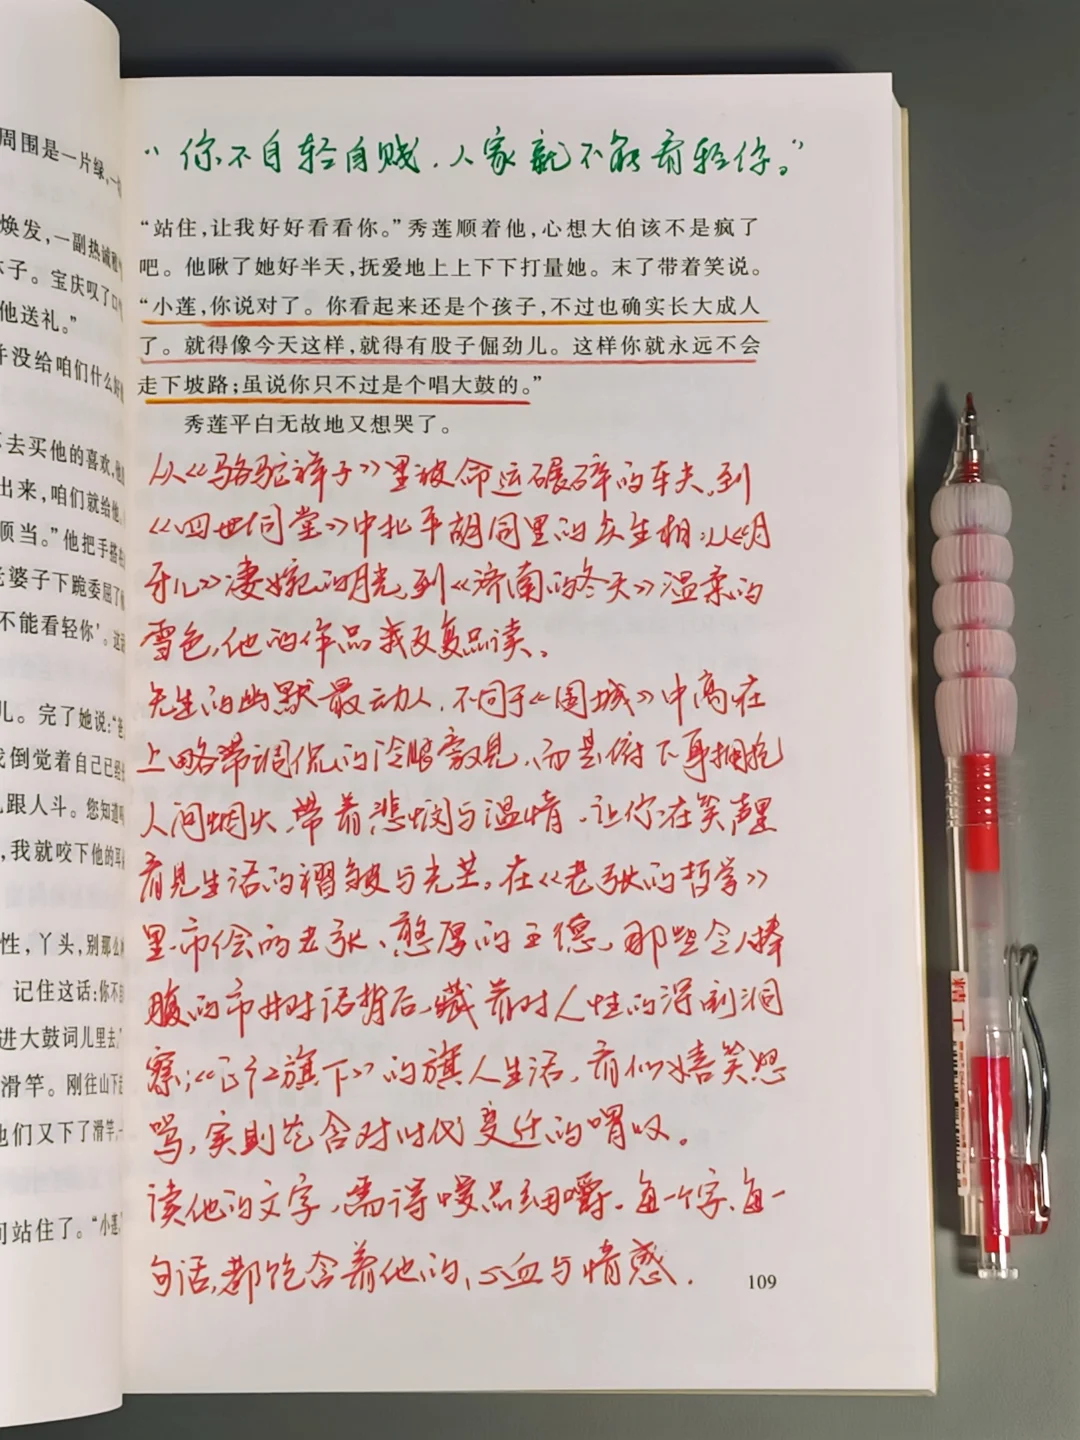 周围是一片绿,一
焕发,一副热诚
子。宝庆叹了口
他送礼。”
并没给咱们什么好
去买他的喜欢,他
出来,咱们就给他
顺当。”他把手搭在
老婆子下跪委屈了
不能看轻你’。这
儿。完了她说:“爸
我倒觉着自己已经
跟人斗。您知道
,我就咬下他的耳
性,丫头,别那么
记住这话:你不
进大鼓词儿里去,”
滑竿。刚往山下
也们又下了滑竿,一
站住了。“小莲,
“你不自轻自贱,人家就不能看轻你。”
“站住,让我好好看看你。”秀莲顺着他,心想大伯该不是疯了
吧。他瞅了她好半天,抚爱地上上下下打量她。末了带着笑说。
“小莲,你说对了。你看起来还是个孩子,不过也确实长大成人
了。就得像今天这样,就得有股子倔劲儿。这样你就永远不会
走下坡路;虽说你只不过是个唱大鼓的。”
秀莲平白无故地又想哭了。
从《骆驼祥子》里被命运碾碎的车夫,到
《四世同堂》中北平胡同里的众生相,从《月
牙儿》凄婉的月光,到《济南的冬天》温柔的
雪色,他的作品我反复品读。
先生的幽默最动人,不同于《围城》中高在
上略带调侃的冷眼旁观,而是俯下身拥抱
人间烟火,带着悲悯与温情,让你在笑声里
看见生活的褶皱与光芒。在《老张的哲学》
里,市侩的老张、憨厚的王德,那些令人捧
腹的市井对话背后,藏着对人性的深刻洞
察;《正红旗下》的旗人生活,看似嬉笑怒
骂,实则饱含对时代变迁的喟叹。
读他的文字,需得慢品细嚼,每一个字、每一
句话,都饱含着他的心血与情感.
109
精工